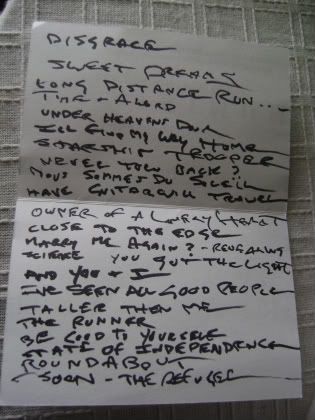 DISGRACE
SWEET DREAMS
LONG DISTANCE RUN...
TIME + A WORD
UNDER HEAVENS DOOR
I'LL FIND MY WAY HOME
STARSHIP TROOPER
NEVER TURN BACK?
NOUS SOMMES DU SOLEIL
HAVE GUITAR WILL TRAVEL
OWNER OF A LONELY HEART
CLOSE TO THE EDGE
MARRY ME AGAIN? - REVEALING
SCIENCE YOU GOT THE LIGHT
AND YOU + I
I'VE SEEN ALL GOOD PEOPLE
TALLER THEN ME
THE RUNNER
BE GOOD TO YOURSELF
STATE OF INDEPENDENCE
ROUNDABOUT
SOON - THE REFUGEE